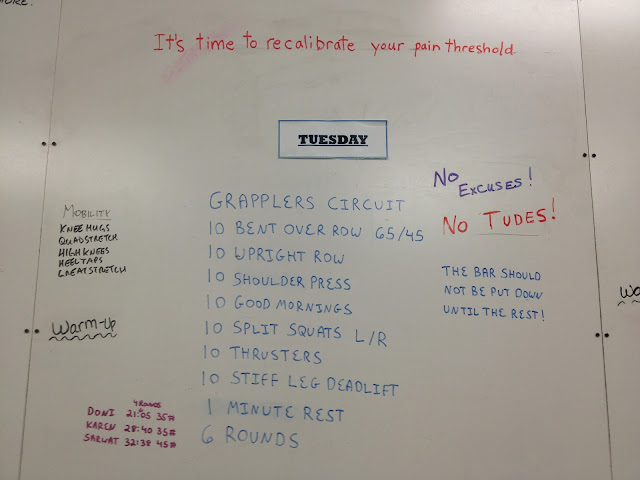 It's time to recalibrate your pain threshold
TUESDAY
No
EXCUSES!
NO TUDES!
THE BAR SHOULD
NOT BE PUT DOWN
UNTIL THE REST!
GRAPPLERS CIRCUIT
10 BENT OVER ROW 65/45
10 UPRIGHT ROW
10 SHOULDER PRESS
10 GOOD MORNINGS
10 SPLIT SQUATS L/R
10 THRUSTERS
10 STIFF LEG DEADLIFT
1 MINUTE REST
6 ROUNDS
MOBILITY
KNEE HUGS
QUAD STRETCH
HIGH KNEES
HEEL TAPS
STRETCH
Warm-Up
4 ROUNDS
DONI 21:05 35#
KAREN 28:40 35#
SARWAT 32:38 45#